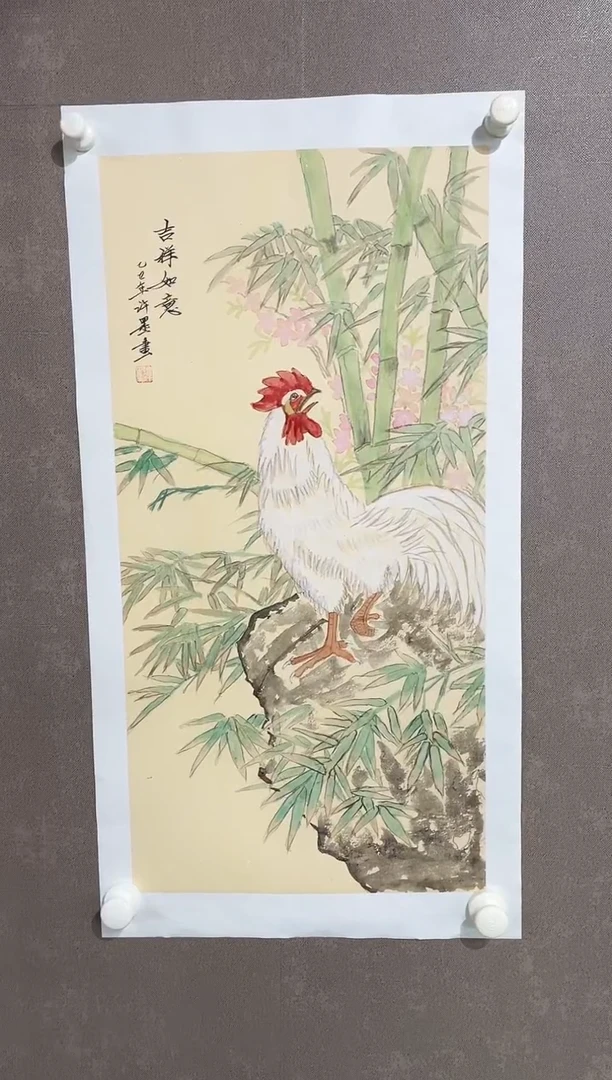 吉祥如意
乙丑年许墨画